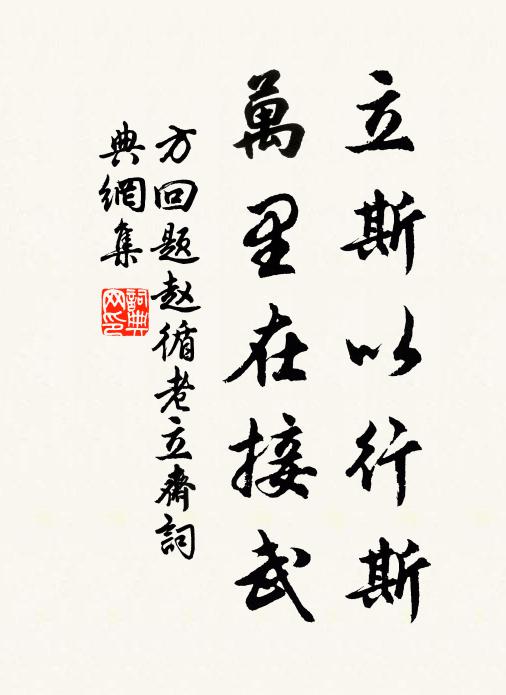 立斯以行斯
萬里在接武
方回题赵循老立齋詞
典網集
詞典
网印